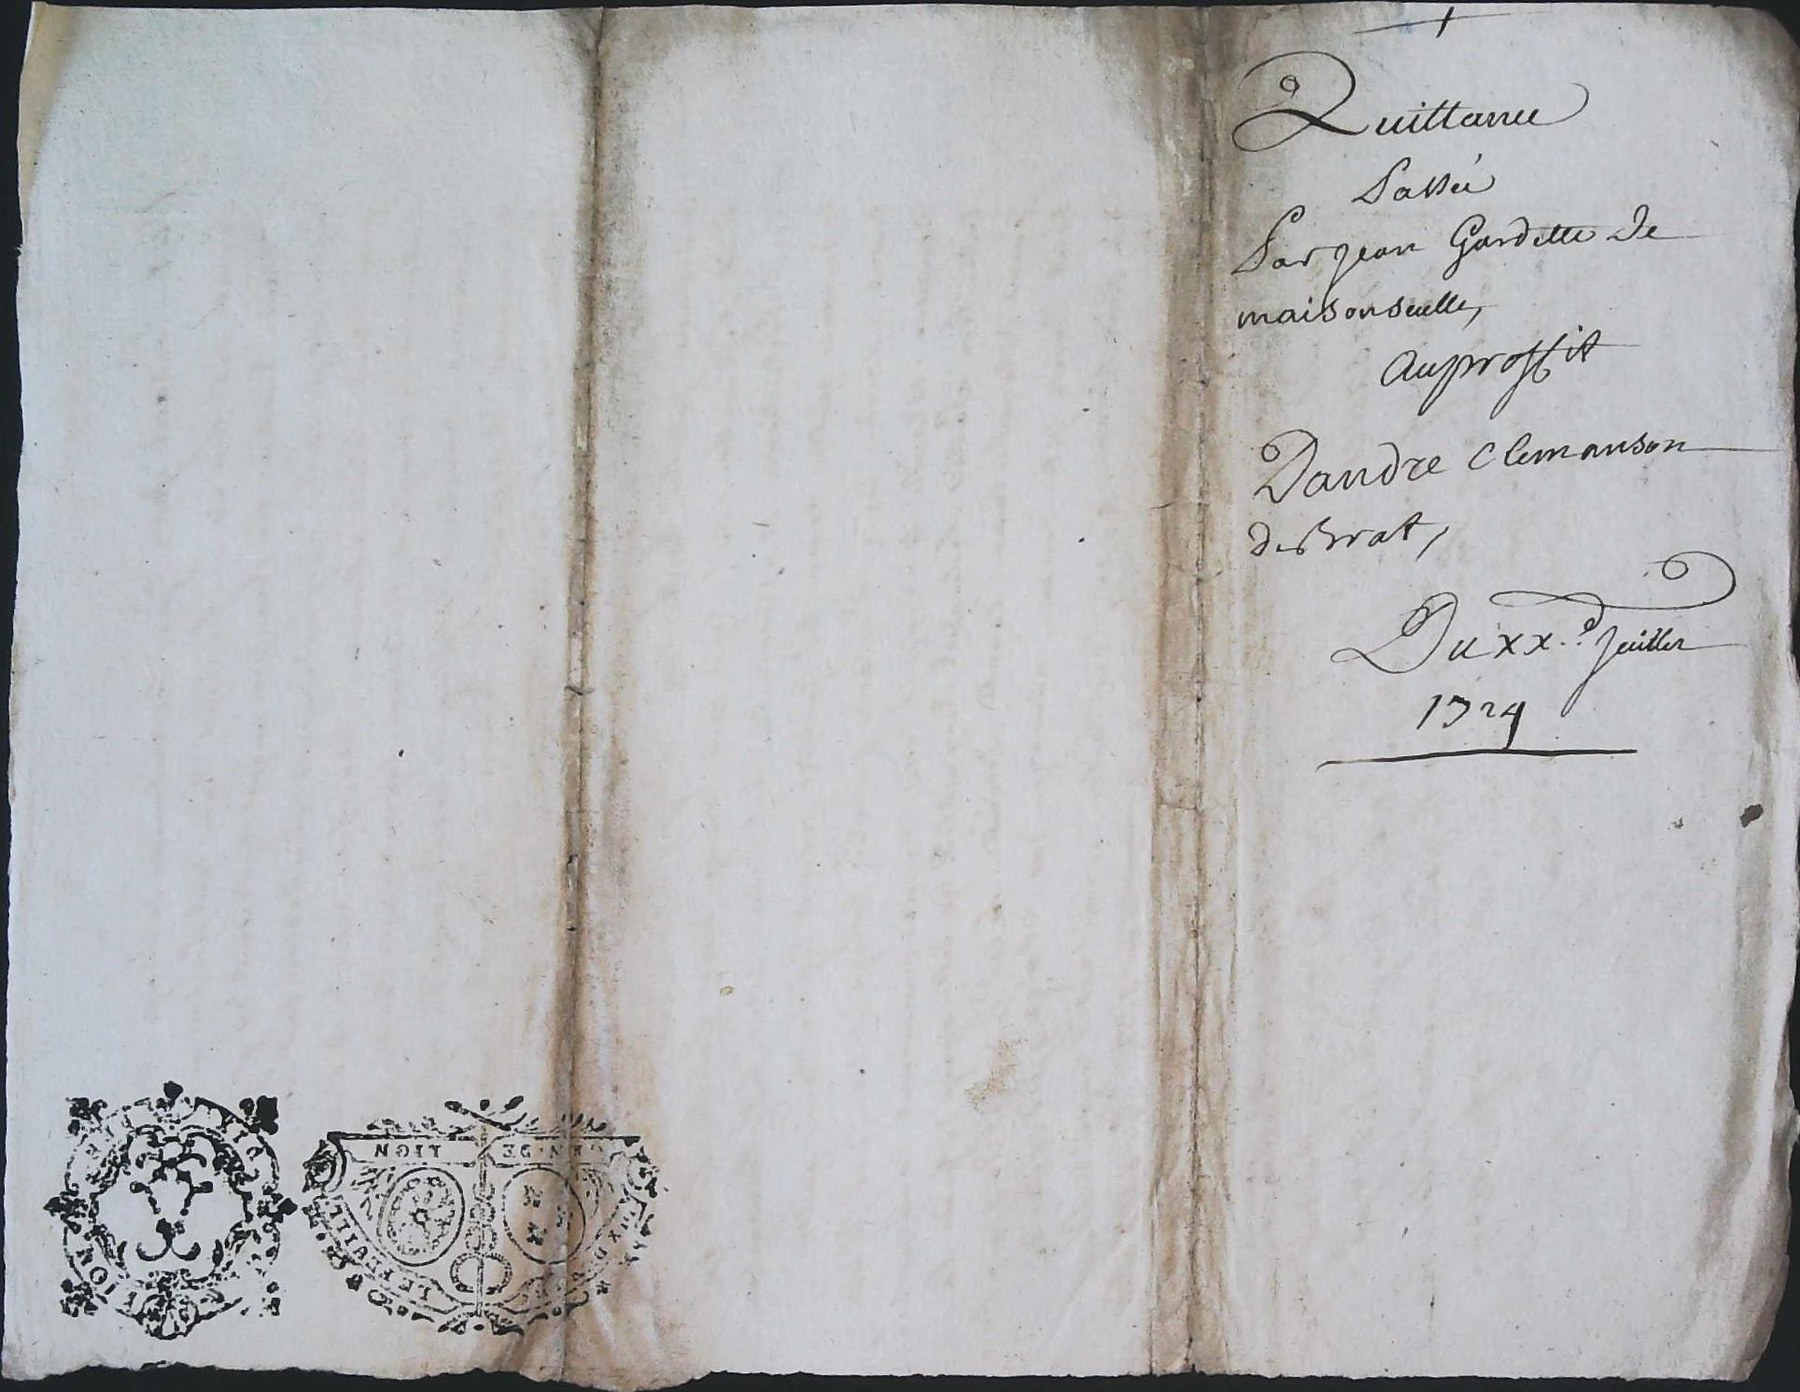 Quittance
Passée
Par jean Gardette de
maisonseulle,
au proffit
Dandre Clemanson
de Brat,
Du xx.e Juillet
1724
GEN. DE LIGN
DEUX D. 
LEFEUILL